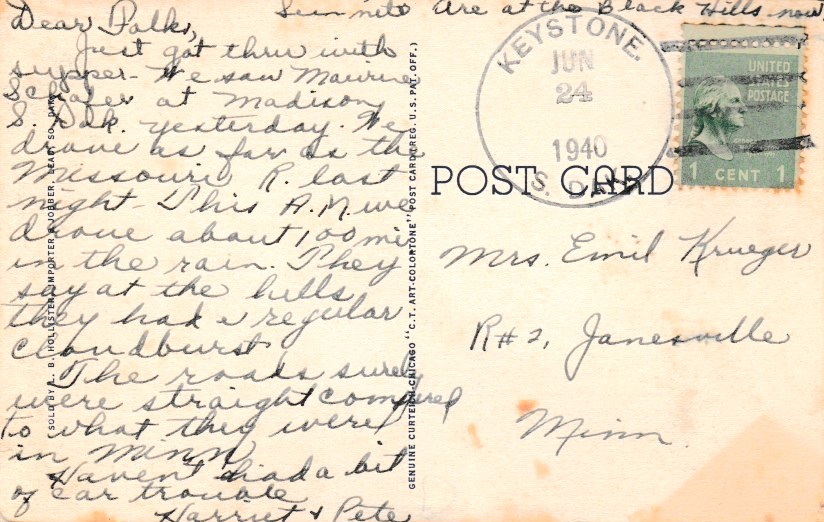 Sun nite Are at the Black Hills now.
Dear Folks,
Just got thru with
supper - We saw Maurine
Schafer at Madison
S. Dak. yesterday. We
drove as far as the
Missouri R. last
night This A.M. we
drove about 100 mi
in the rain. They
say at the hills
they had a regular
cloudburst
The roads surely
were straight compared
to what they were
in Minn
Haven't had a bit
of car trouble
Harriet & Pete
SOLD BY B. HOLLISTER, IMPORTER & JOBBER, LEAD, SO. DAK.
GENUINE CURTEICH-CHICAGO "C.T. ART-COLORTONE" POST CARD (REG. U.S. PAT. OFF.)
KEYSTONE.
JUN
24
1940
S. DAK
UNITED
STATES
POSTAGE
1 CENT 1
POST CARD
Mrs. Emil Krueger
R#2, Janesville
Minn.